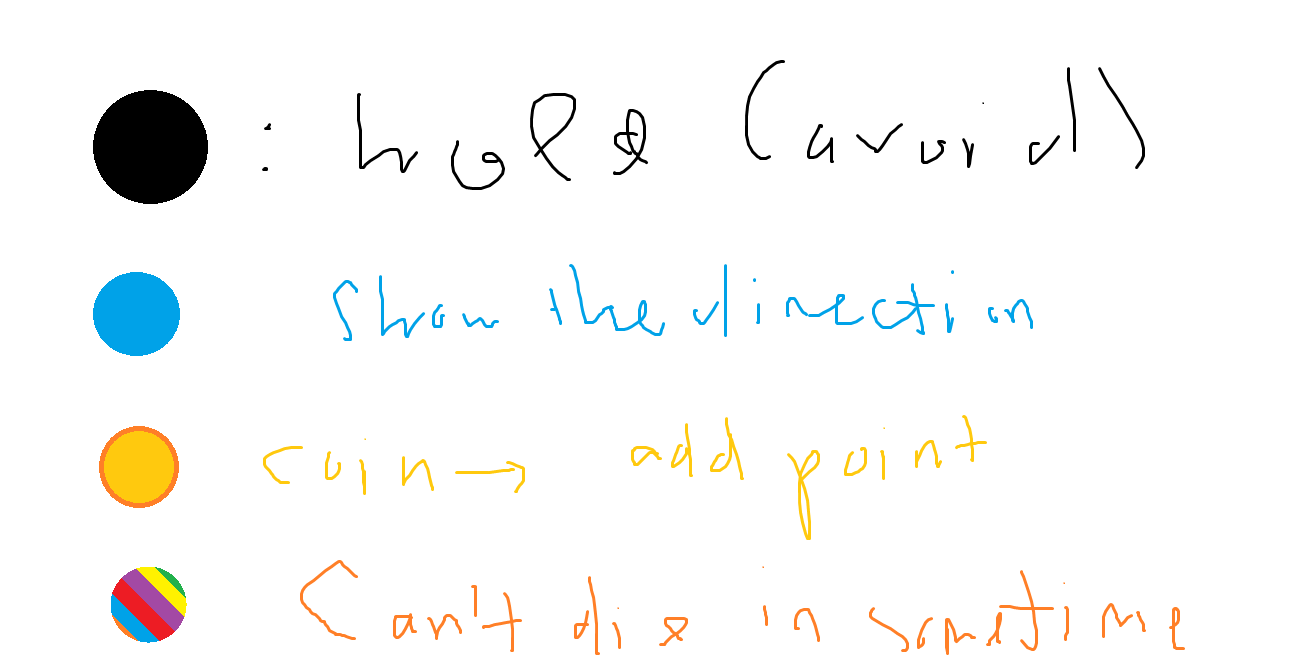 : hole (avoid)
Show the direction
coin → add point
Can't die in sometime